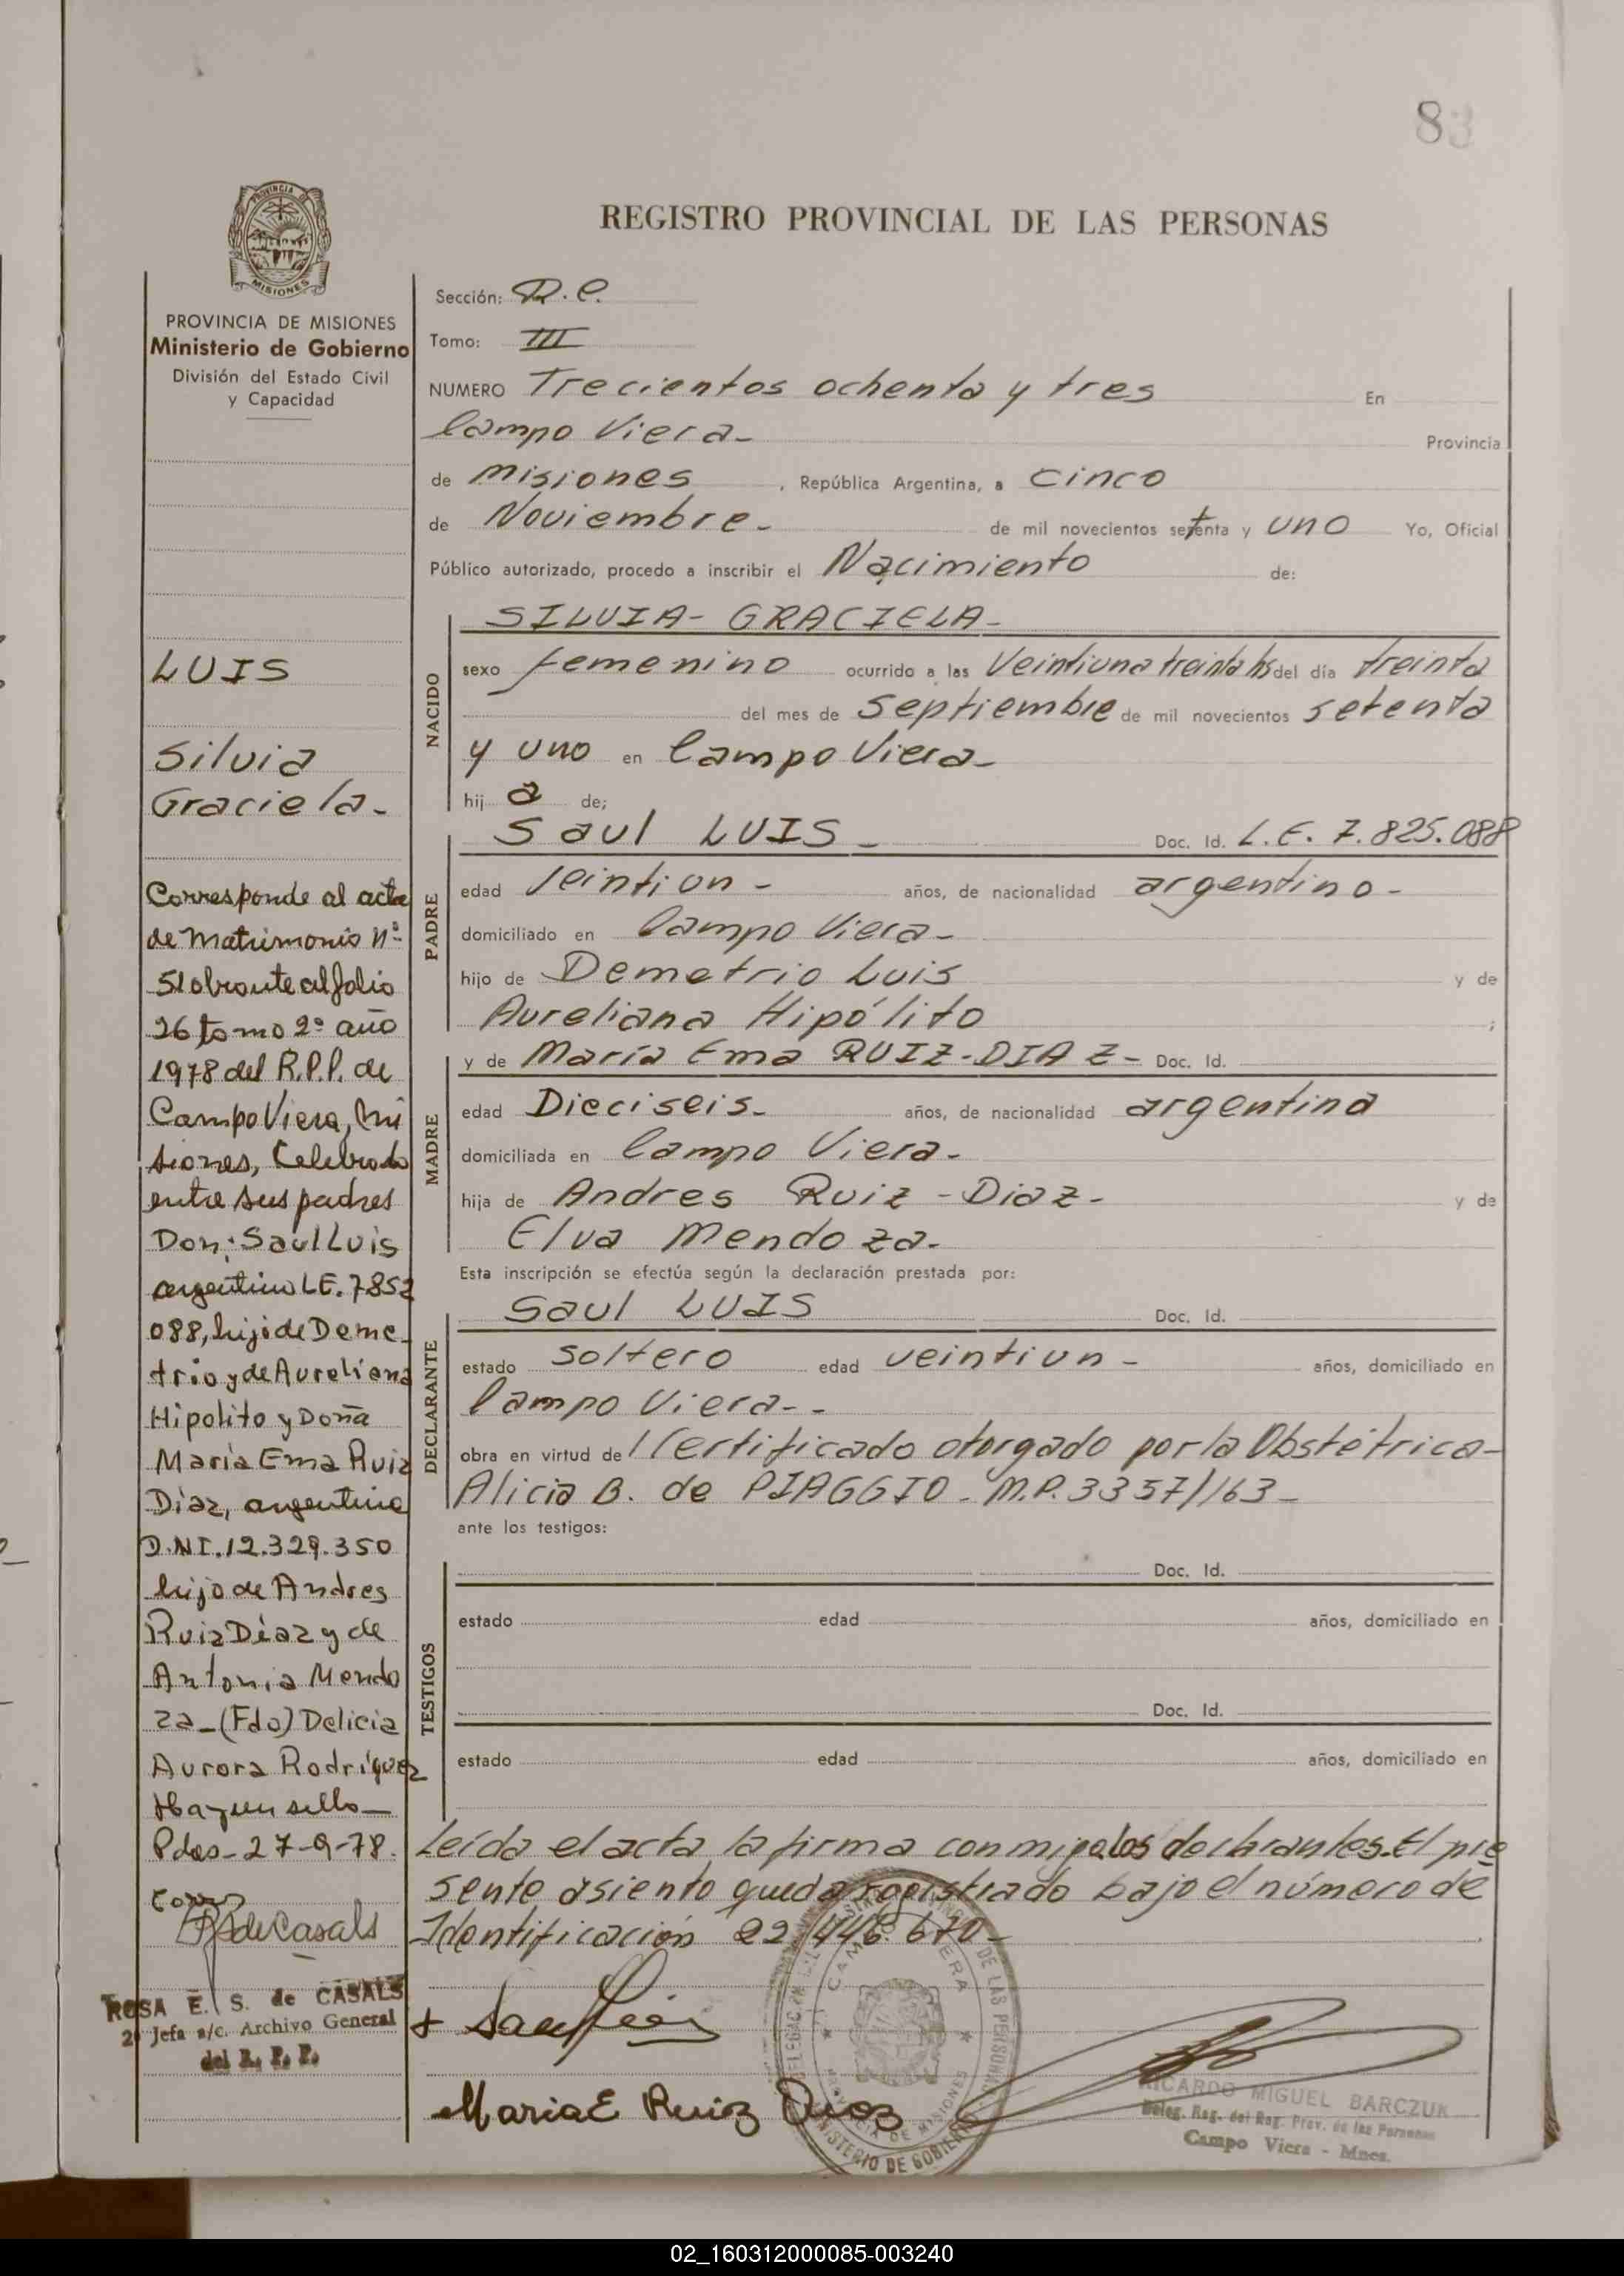 83
REGISTRO PROVINCIAL DE LAS PERSONAS
PROVINCIA DE MISIONES
Ministerio de Gobierno
División del Estado Civil
y Capacidad
LUIS
Silvia
Graciela-
Corresponde al acta
de Matrimonio Nº
51 obrante al folio
26 tomo 2º año
1978 del R.P.P. de
Campo Viera, Mi
siones, Celebrado
entre sus padres
Don: Saul Luis
argentino LE. 7852
088, hijo de Deme
trio y de Aureliana
Hipolito y Doña
María Ema Ruiz
Díaz, argentina
D.NI.12.329.350
hija de Andres
Ruiz Díaz y de
Antonia Mendo
za-(Fdo) Delicia
Aurora Rodríguez
Hay un sello-
Pdas-27-9-78.
de Casals
ROSA E. S. de CASALS
2º Jefa a/c. Archivo General
del R. P. P.
Sección: R.C.
Tomo: III
NUMERO Trecientos ochenta y tres En
Campo Viera- Provincia
de Misiones, República Argentina, a cinco
de Noviembre- de mil novecientos setenta y uno Yo, Oficial
Público autorizado, procedo a inscribir el Nacimiento de:
NACIDO
SILVIA- GRACIELA-
sexo femenino ocurrido a las Veintiuna treinta hs del día treinta
del mes de Septiembre de mil novecientos setenta
y uno en Campo Viera-
hij a de;
PADRE
Saul LUIS- Doc. Id. L.E. 7.825.088
edad Veintiun- años, de nacionalidad argentino-
domiciliado en Campo Viera-
hijo de Demetrio Luis y de
Aureliana Hipólito ;
MADRE
y de María Ema RUIZ-DIAZ- Doc. Id.
edad Dieciseis- años, de nacionalidad argentina
domiciliada en Campo Viera-
hija de Andres Ruiz-Diaz- y de
Elva Mendoza-
Esta inscripción se efectúa según la declaración prestada por:
DECLARANTE
Saul LUIS Doc. Id.
estado soltero edad veintiun- años, domiciliado en
Campo Viera--
obra en virtud de l Certificado otorgado por la Obstétrica-
Alicia B. de PIAGGIO- M.P. 3357/163-
ante los testigos:
TESTIGOS
Doc. Id.
estado edad años, domiciliado en
Doc. Id.
estado edad años, domiciliado en
Leída el acta la firma conmigo los declarantes-El pre
sente asiento queda registrado bajo el número de
Identificación 22.446.670-
Maria E Ruiz Dios
DELEGACION
CAMPO VIERA
DE LAS PERSONAS
PROVINCIA DE MISIONES
MINISTERIO DE GOBIERNO
RICARDO MIGUEL BARCZUK
Deleg. Reg. del Reg. Prov. de las Personas
Campo Viera - Mnes.
02_160312000085-003240